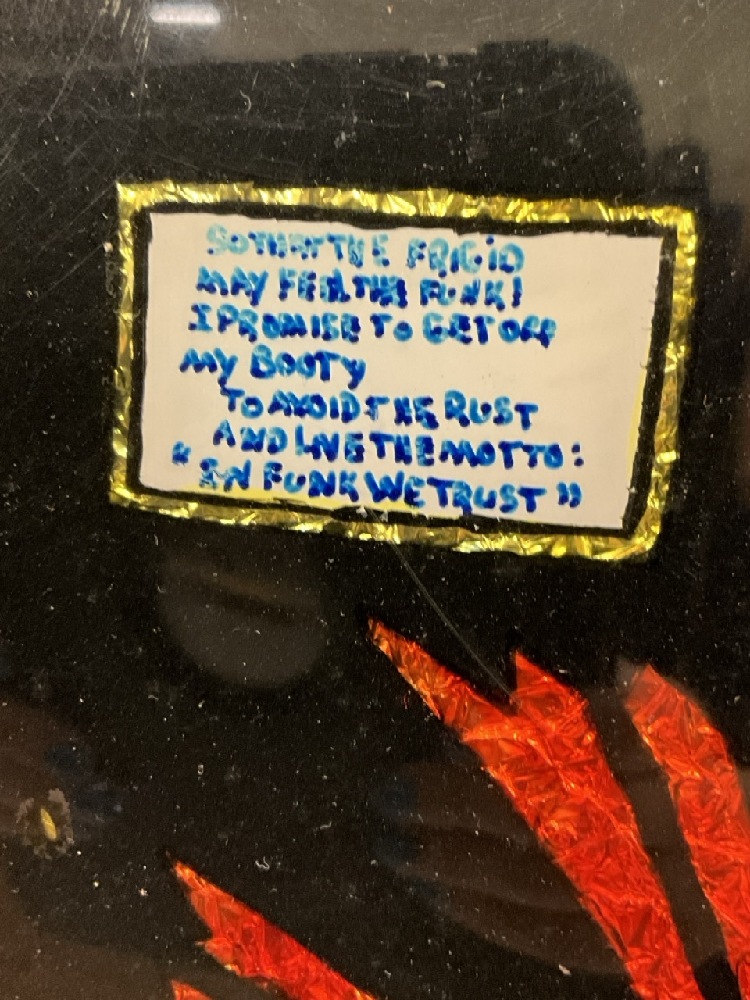 SO THAT THE FRIGID
MAY FEEL THE FUNK!
I PROMISE TO GET OFF
MY BOOTY
TO AVOID THE RUST
AND LIVE THE MOTTO:
"IN FUNK WE TRUST"